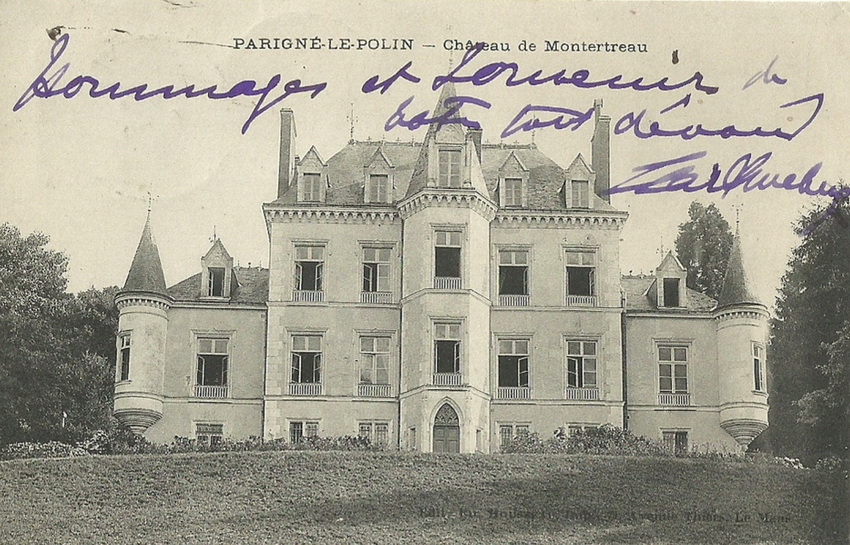 PARIGNÉ-LE-POLIN — Château de Montertreau
Hommages et Souvenir de
votre tout dévoué
Edit. Avenue Thiers, Le Mans